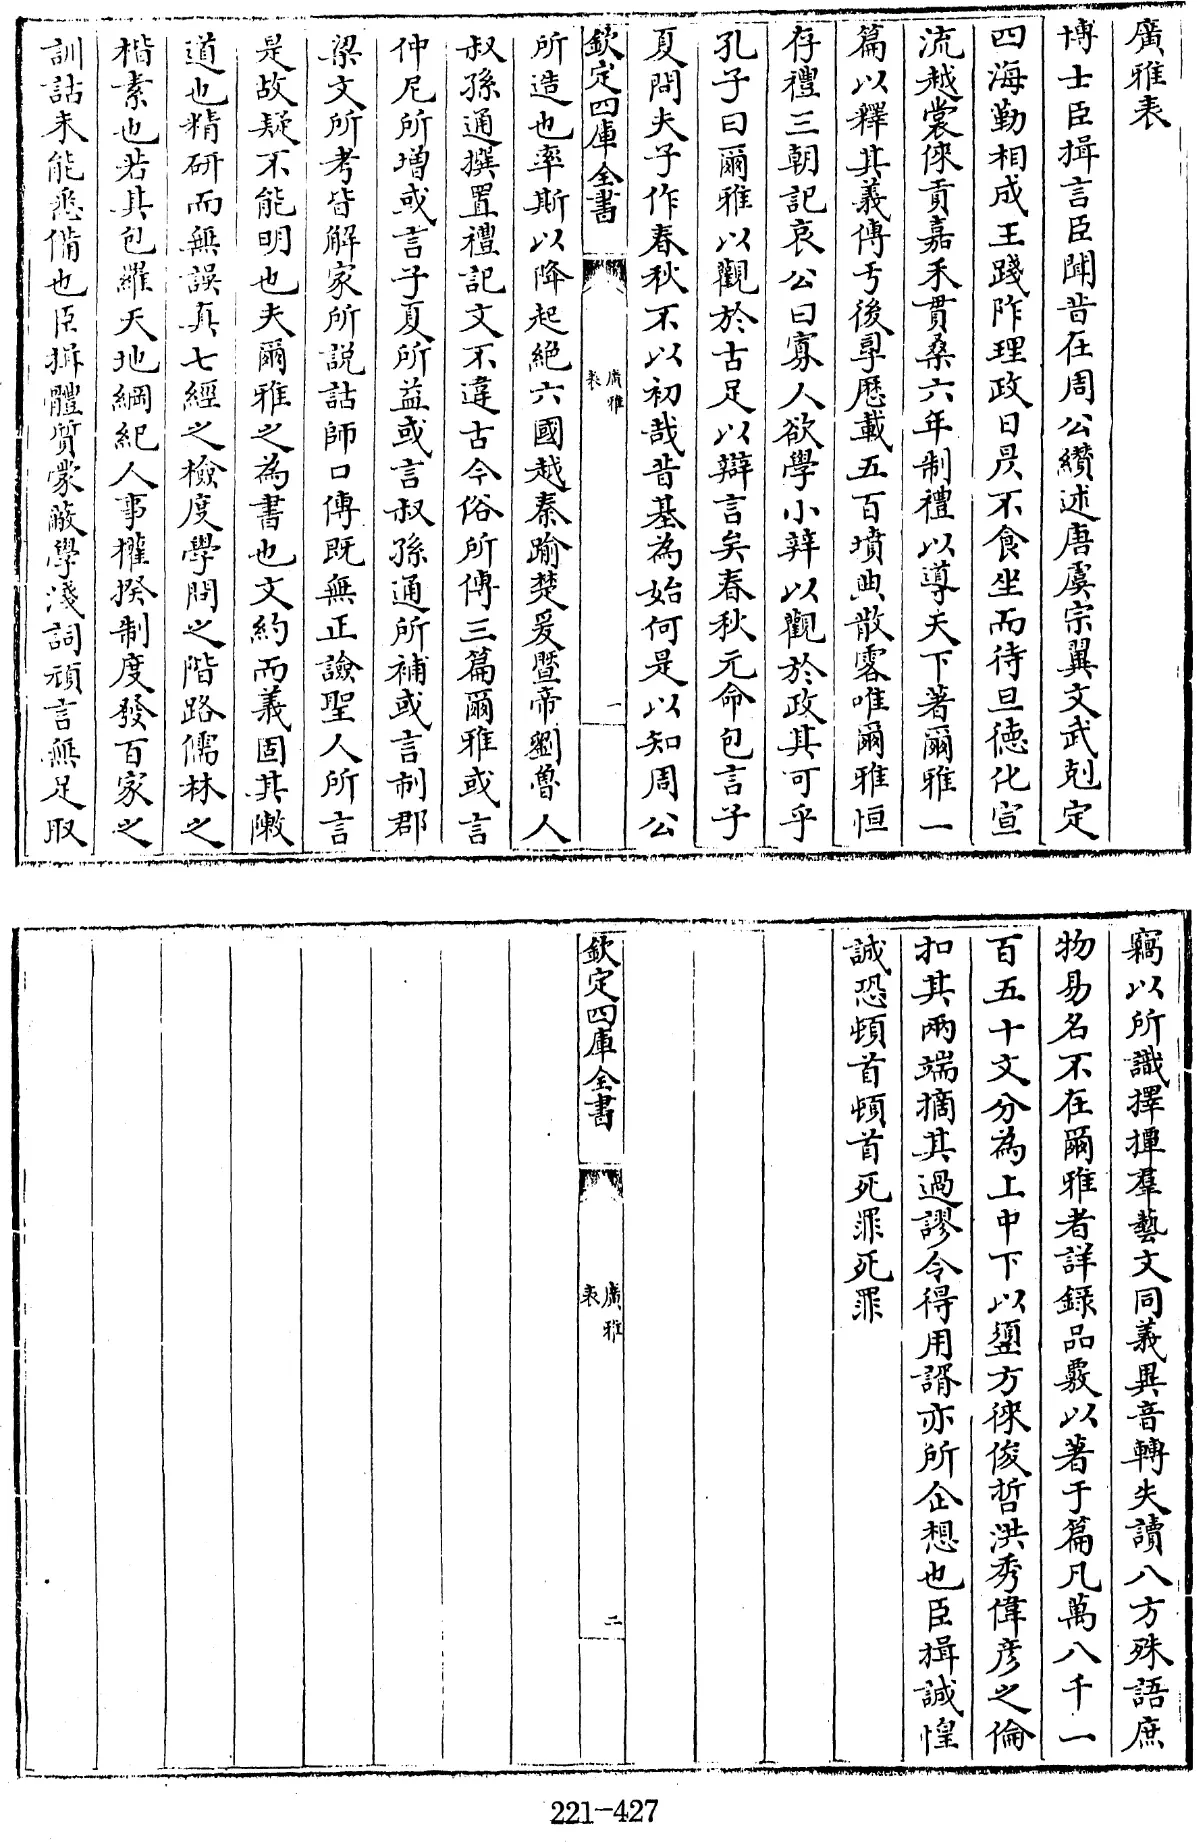 廣雅表
博士臣揖言臣聞昔在周公纘述唐虞宗翼文武剋定
四海勤相成王踐阼理政日昃不食坐而待旦德化宣
流越裳倈貢嘉禾貫桑六年制禮以導天下著爾雅一
篇以釋其義傳于後㝈歷載五百墳典散零唯爾雅恒
存禮三朝記哀公曰寡人欲學小辯以觀於政其可乎
孔子曰爾雅以觀於古足以辯言矣春秋元命包言子
夏問夫子作春秋不以初哉首基為始何是以知周公
欽定四庫全書
廣雅
表
一
所造也率斯以降超絶六國越秦踰楚爰暨帝劉魯人
叔孫通撰置禮記文不違古今俗所傳三篇爾雅或言
仲尼所增或言子夏所益或言叔孫通所補或言制郡
梁文所考皆解家所説詁師口傳既無正譣聖人所言
是故疑不能明也夫爾雅之為書也文約而義固其陳
道也精研而無誤真七經之檢度學問之階路儒林之
楷素也若其包羅天地綱紀人事權揆制度發百家之
訓詁未能悉備也臣揖體質蒙蔽學淺詞頑言無足取
竊以所識擇撢羣藝文同義異音轉失讀八方殊語庶
物易名不在爾雅者詳録品覈以著于篇凡萬八千一
百五十文分為上中下以𩔰方倈俊哲洪秀偉彦之倫
扣其兩端摘其過謬令得用諝亦所企想也臣揖誠惶
誠恐頓首頓首死罪死罪
欽定四庫全書
廣雅
表
二
221-427